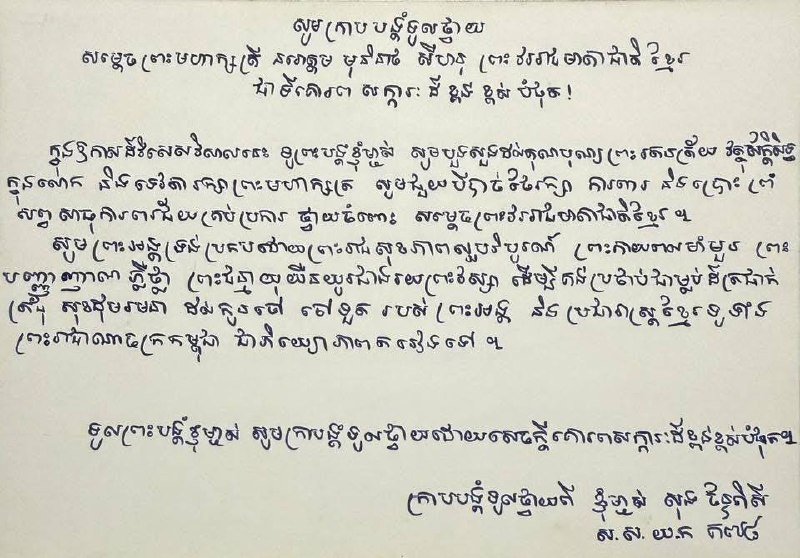 សូមក្រាបបង្គំទូលថ្វាយ
សម្តេចព្រះមហាក្សត្រី នរោត្តម មុនិនាថ សីហនុ ព្រះវររាជមាតាជាតិខ្មែរ
ជាទីគោរព សក្ការៈដ៏ខ្ពង់ខ្ពស់បំផុត!
ក្នុងឱកាសដ៏វិសេសវិសាលនេះ ទូលព្រះបង្គំខ្ញុំម្ចាស់ សូមបួងសួងដល់គុណបុណ្យព្រះរតនត្រ័យ វត្ថុស័ក្តិសិទ្ធ
ក្នុងលោក និងទេវតារក្សាព្រះមហាក្សត្រ សូមជួយបីបាច់ថែរក្សា ការពារ និងប្រោះព្រំ
សព្ទសាធុការពរជ័យគ្រប់ប្រការ ថ្វាយចំពោះ សម្តេចព្រះវររាជមាតាជាតិខ្មែរ ។
សូមព្រះអង្គទ្រង់ប្រកបដោយព្រះរាជសុខភាពល្អបរិបូរណ៍ ព្រះកាយពលមាំមួន ព្រះ
បញ្ញាញាណភ្លឺថ្លា ព្រះជន្មាយុយឺនយូរជាងរយព្រះវស្សា ដើម្បីគង់ប្រថាប់ជាម្លប់ដ៏ត្រជាក់
ត្រជុំ សុខដុមរមនា ដល់កូនចៅ ចៅទួត របស់ព្រះអង្គ និងប្រជារាស្ត្រខ្មែរទូទាំង
ព្រះរាជាណាចក្រកម្ពុជា ជាភិយ្យោភាពតរៀងទៅ ។
ទូលព្រះបង្គំខ្ញុំម្ចាស់ សូមក្រាបបង្គំទូលថ្វាយដោយសេចក្តីគោរពសក្ការៈដ៏ខ្ពង់ខ្ពស់បំផុត។
ក្រាបបង្គំទូលថ្វាយពី ខ្ញុំម្ចាស់ សុង
ស.ស.យ.ក